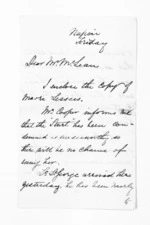 Napier
Friday
Dear Mr McLean
I enclose the copy of
Maori Leases.
Mr Cooper informs me
that the Start has been con-
demned as unseaworthy so
there will be no chance of
using her.
St George arrived here
yesterday he has been nearly